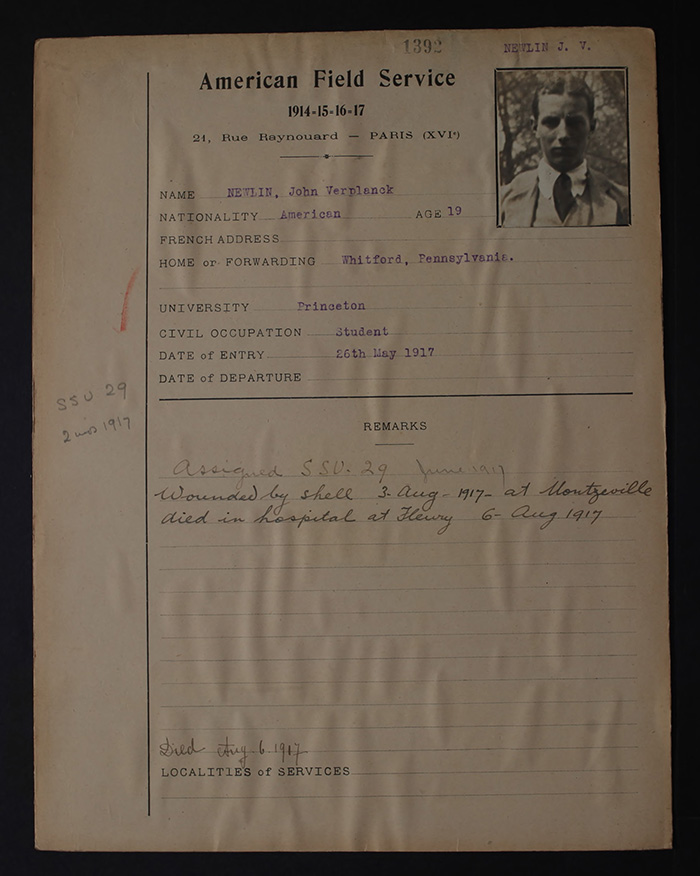 1392
NEWLIN J. V.
American Field Service
1914-15-16-17
21, Rue Raynouard — PARIS (XVIe)
NAME NEWLIN, John Verplanck
NATIONALITY American AGE 19
FRENCH ADDRESS
HOME or FORWARDING Whitford, Pennsylvania.
UNIVERSITY Princeton
CIVIL OCCUPATION Student
DATE of ENTRY 26th May 1917
DATE of DEPARTURE
SSU 29
2 mos 1917
REMARKS
Assigned SSU. 29 June 1917
Wounded by shell 3- Aug - 1917 - at Montzeville
died in hospital at Fleury 6- Aug 1917
Died Aug 6. 1917
LOCALITIES of SERVICES